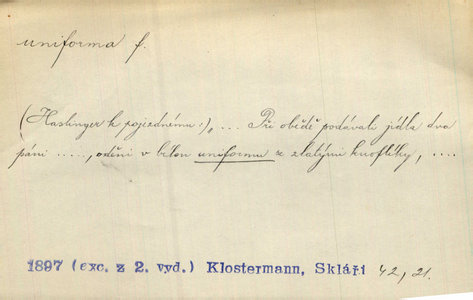 uniforma f.
(Haslinger k pojezdnému:)„ ... Při obědě podávali jídla dva
páni ....., oděni v bílou uniformu ze zlatými knoflíky, ....
1897 (exc. z 2. vyd.) Klostermann, Skláři 42, 21.